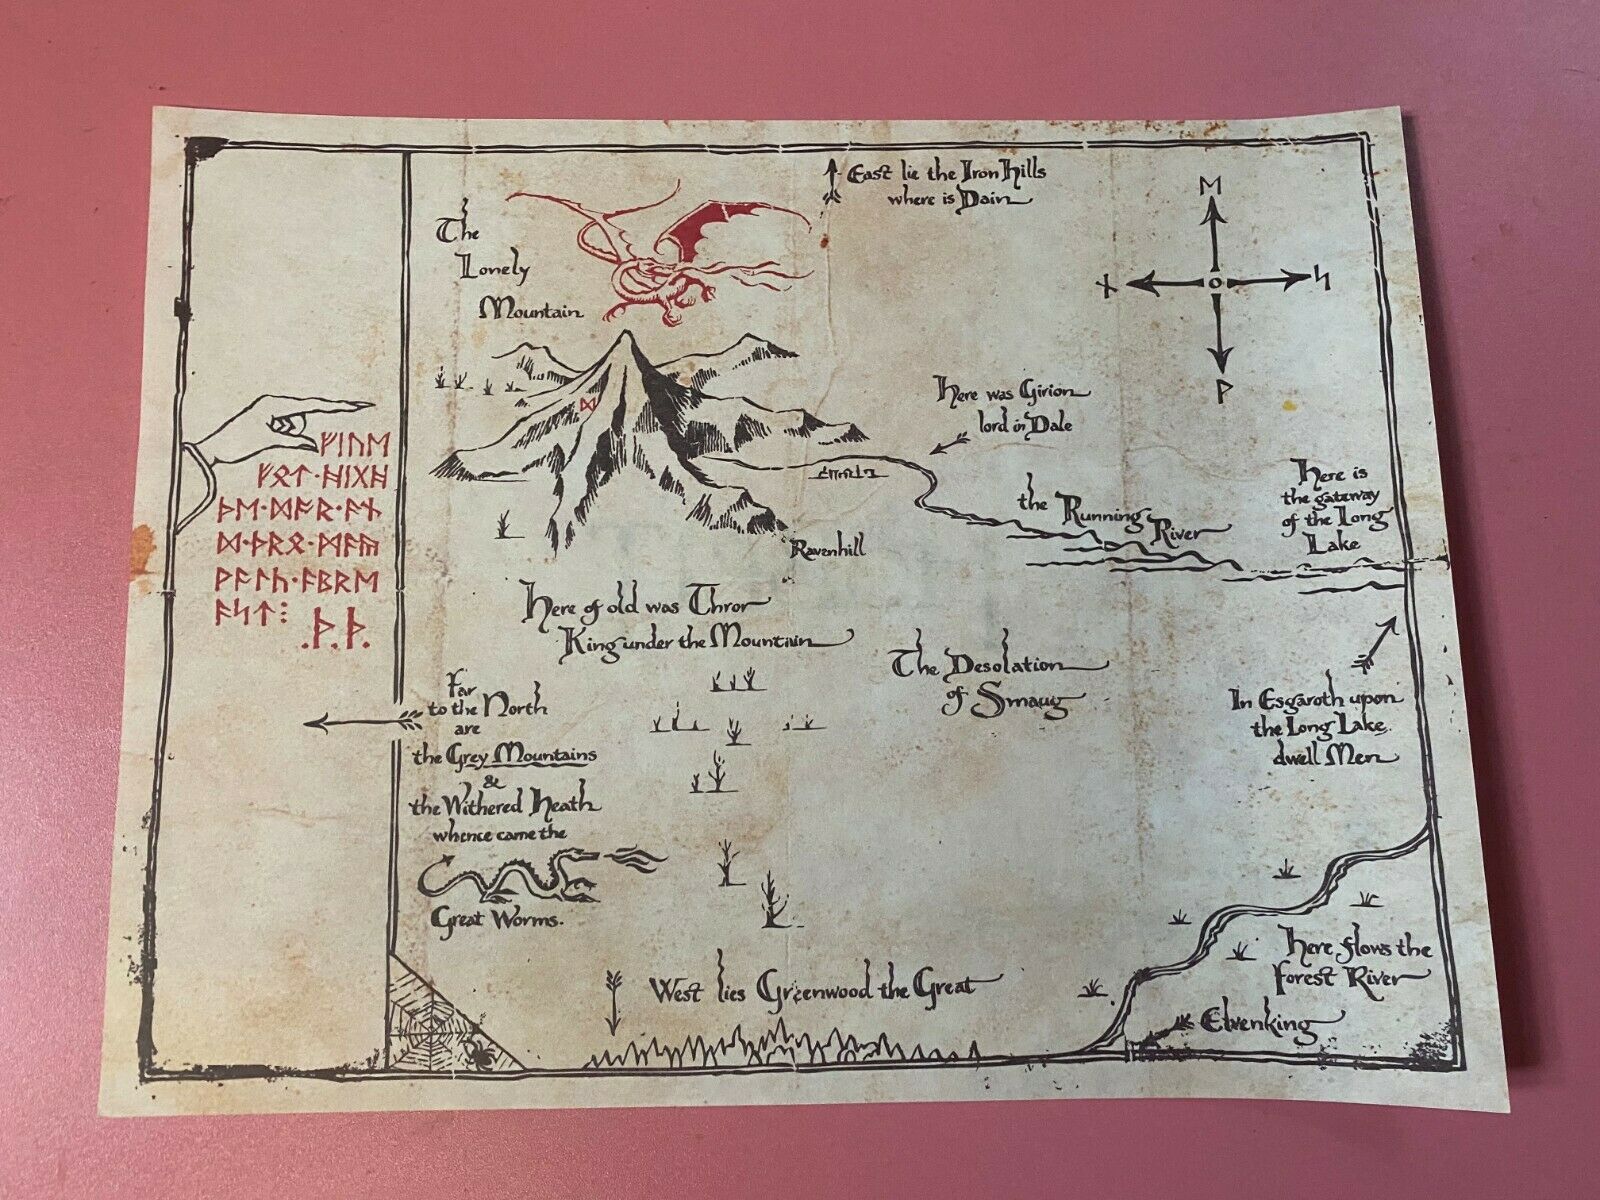 East lie the Iron Hills
where is Dain
The
Lonely
Mountain
ᛖ
ᚾ
ᛋ
ᚹ
ᛞ
Here was Girion
lord in Dale
ᚠᛁᚢᛖ
ᚠᚩᛏ·ᚻᛁᚷᚻ
ᚦᛖ·ᛞᚩᚱ·ᚪᚾ
ᛞ·ᚦᚱᛟ·ᛗᚪᚣ
ᚹᚪᛚᚳ·ᚪᛒᚱᛖ
ᚪᛋᛏ⁝
.ᚦ.ᚦ.
the Running River
Here is
the gateway
of the Long
Lake
Ravenhill
Here of old was Thror
King under the Mountain
The Desolation
of Smaug
Far
to the North
are
the Grey Mountains
&
the Withered Heath
whence came the
Great Worms.
In Esgaroth upon
the Long Lake
dwell Men
West lies Greenwood the Great
Here flows the
Forest River
Elvenking